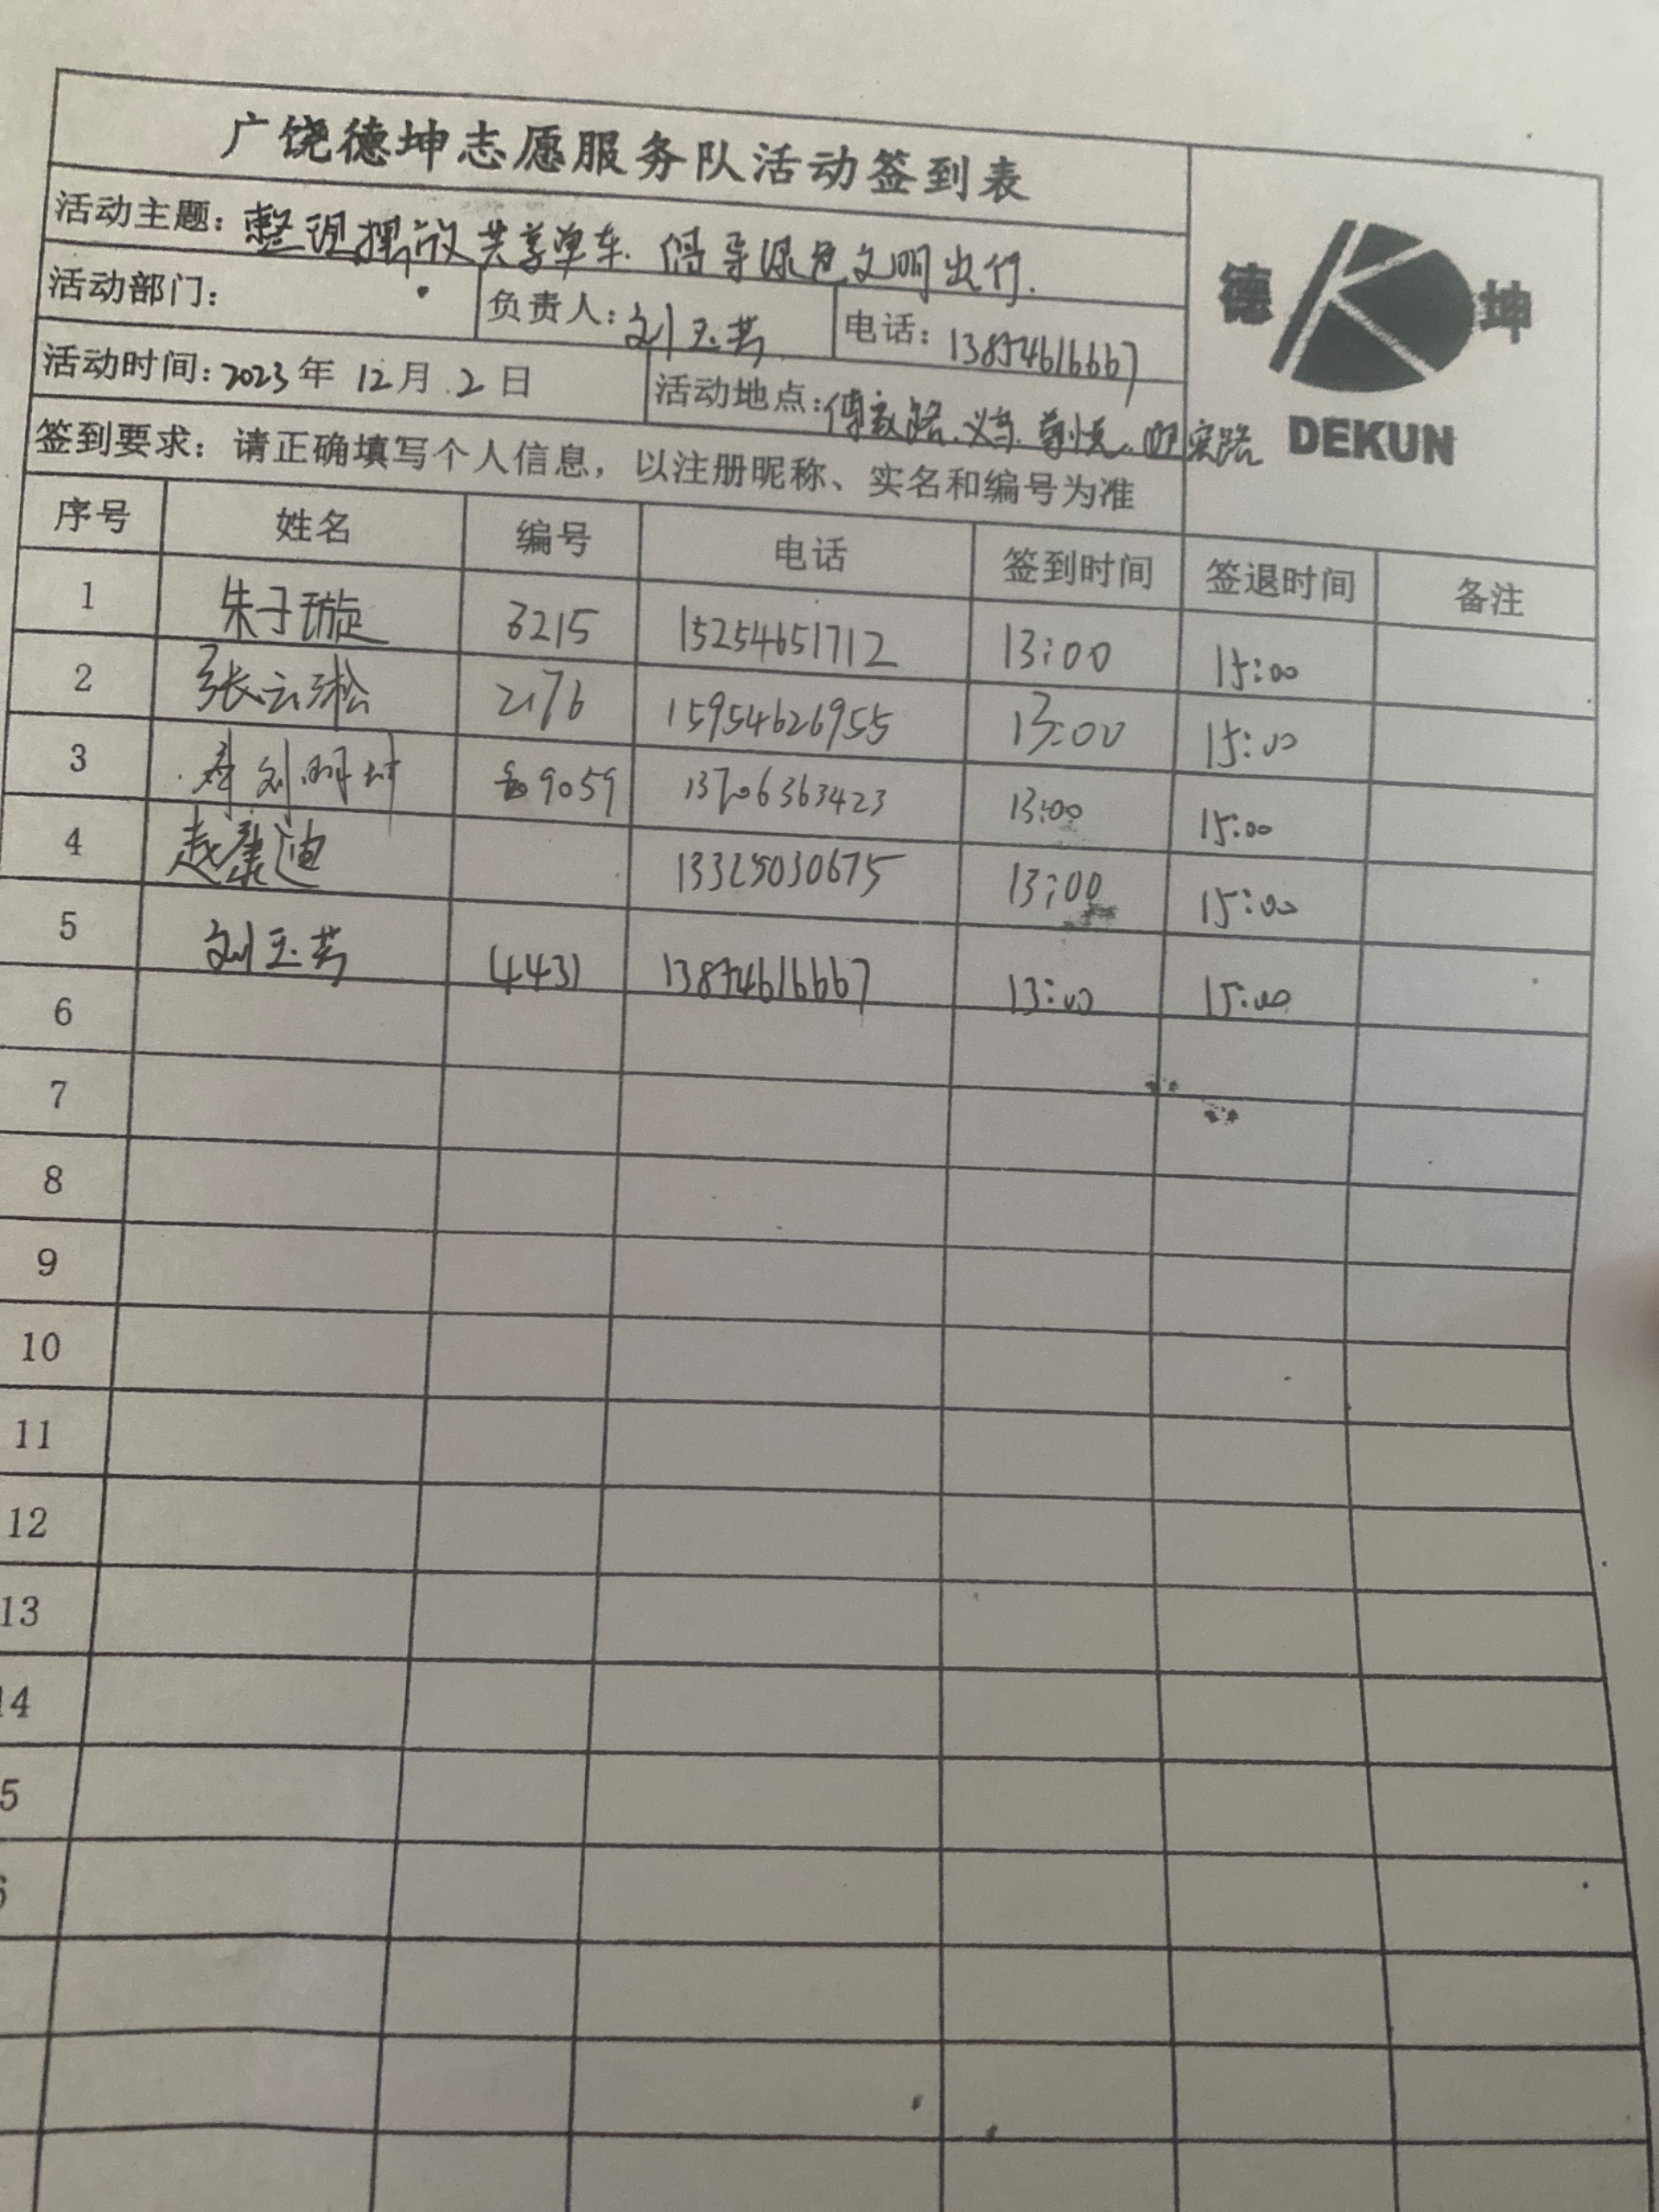 广饶德坤志愿服务队活动签到表
活动主题：整理摆放共享单车.倡导绿色文明出行.
德 坤
活动部门： 负责人：刘玉芳 电话：13854616667
活动时间：2023年12月2日 活动地点：
DEKUN
签到要求：请正确填写个人信息，以注册昵称、实名和编号为准
序号 姓名 编号 电话 签到时间 签退时间 备注
1 朱子璇 3215 15254651712 13:00 15:00
2 张云淞 2176 15954626955 13:00 15:00
3 刘明坤 9059 13706363423 13:00 15:00
4 赵康迪 13325030675 13:00 15:00
5 刘玉芳 4431 13854616667 13:00 15:00
6
7
8
9
10
11
12
13
14
5